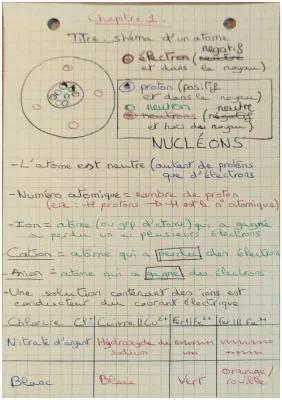 Chapitre 1.
Titre: shéma d'un atome
négatif
électron (neutre
et dans le noyau)
proton (positif
et dans le noyau)
neutron neutre
neutrons (négatif
et hors du noyau)
NUCLÉONS
-L'atome est neutre (autant de protons
que d'électrons
-Numéro atomique = nombre de proton
protons → est le n° atomique)
-Ion = atome (ou grp d'atome) qui a gagné
ou perdu un ou plusieurs électrons
-Cation = atome qui a perdu des électrons
-Anion = atome qui a gagné des électrons
-Une solution contenant des ions est
conducteur du courant électrique
Chlorure Cl⁻ Cuivre II Cu²⁺ Fer II Fe²⁺ Fer III Fe³⁺
Nitrate d'argent Hydroxyde de
sodium
Blanc Bleu Vert orange/
rouille